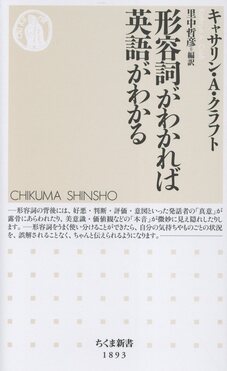 キャサリン・A・クラフト
里中哲彦=編訳
形容詞がわかれば
英語がわかる
CHIKUMA SHINSHO
―形容詞の背後には、好悪・判断・評価・意図といった発話者の「真意」が
露骨にあらわれたり、美意識・価値観などの"本音"が微妙に見え隠れしたりし
ます。――形容詞をうまく使い分けることができたら、自分の気持ちやものごとの状況
を、誤解されることなく、ちゃんと伝えられるようになります。
ちくま新書
1893